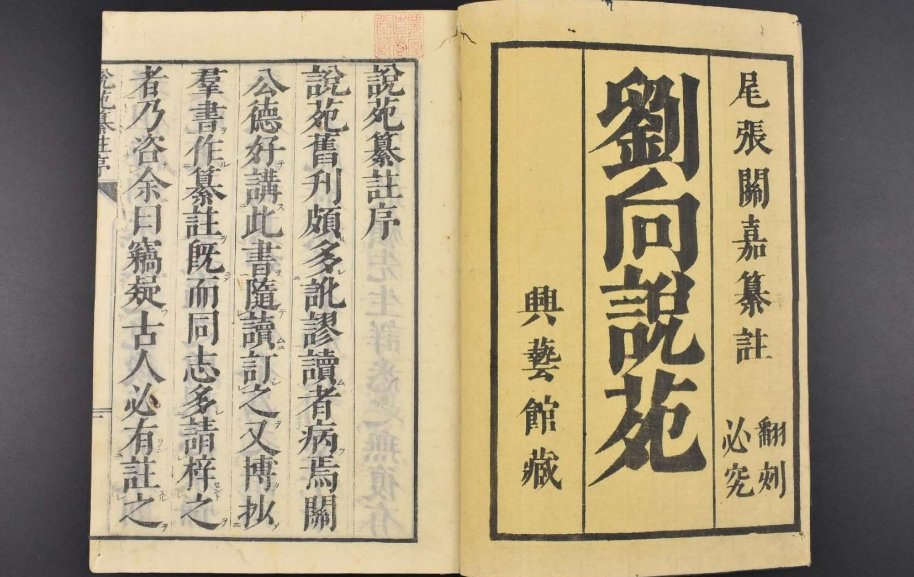 尾張關嘉纂註
翻刻
必究
劉向說苑
興藝館藏
說苑纂註序
說苑舊刊頗多訛謬讀者病焉關
公德好講此書隨讀訂之又博抄
羣書作纂註既而同志多請梓之
者乃咨余曰竊疑古人必有註之
說苑纂註序